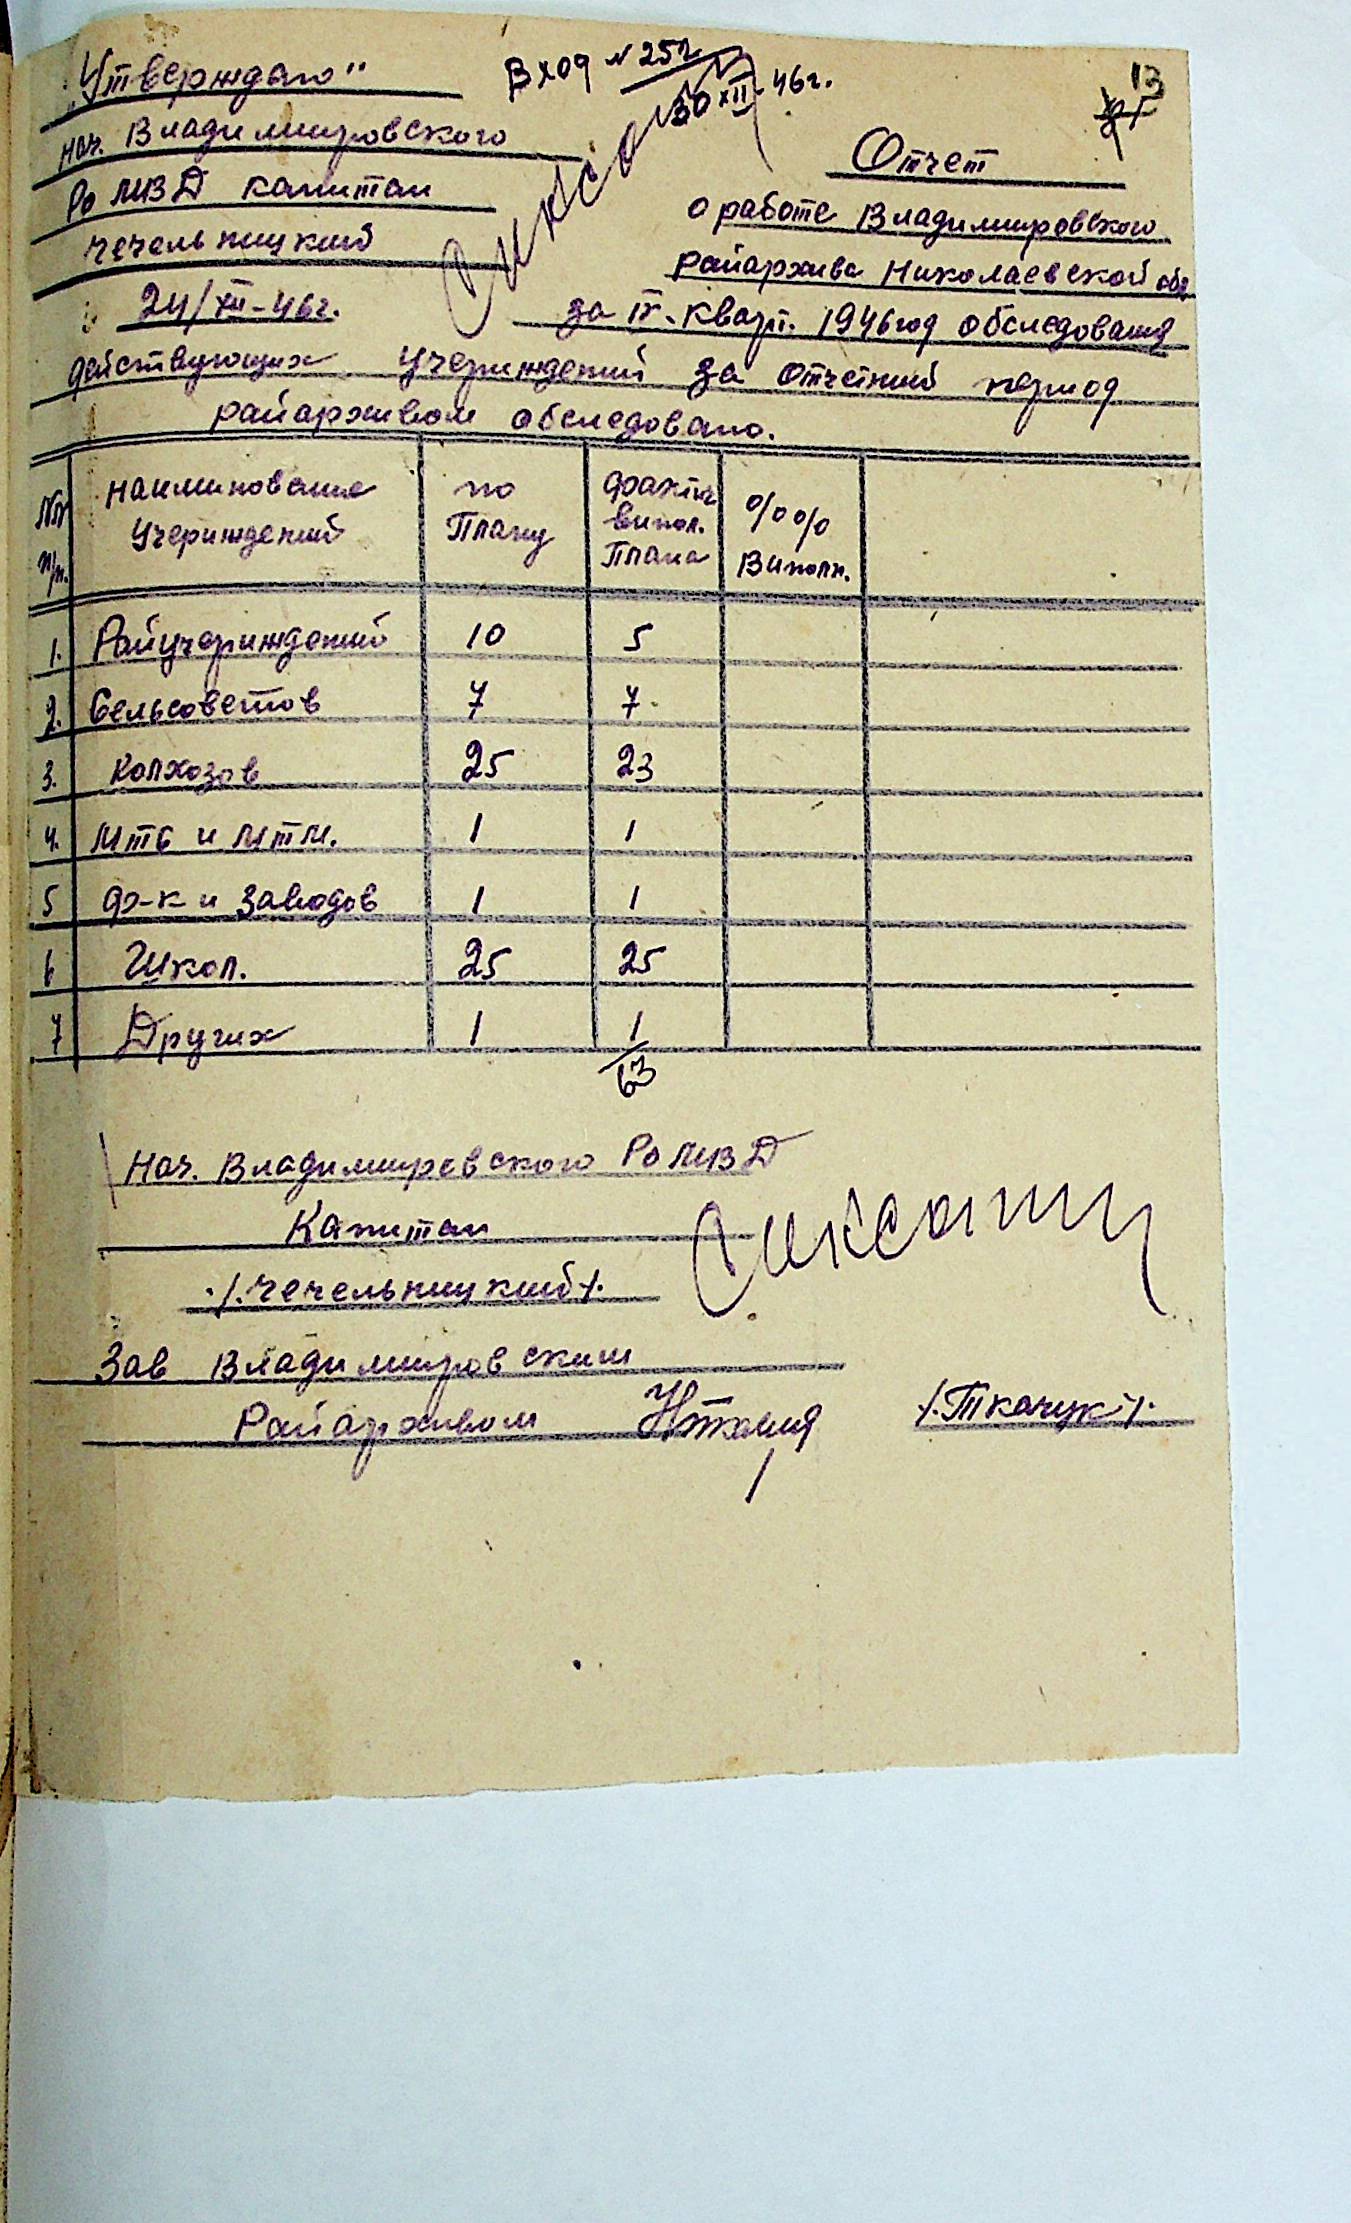 „Утверждаю"
нач. Владимировского
Ро МВД капитан
чечельницкий
24/XII-46г.
Вход N 252
30 XII-46г.
13
Отчет
о работе Владимировского
райархива Николаевской обл
за IV. кварт. 1946 год обследования
действующих учериждений за отчетний период
райархивом обследовано.
NN п/п. | наиминования учериждений | по плану | фактич випол. плана | %% виполн.
1. Райучериждений 10 5
2. Сельсоветов 7 7
3. Колхозов 25 23
4. мтс и мтм. 1 1
5 ф-к и заводов 1 1
6 Школ. 25 25
7 Других 1 1
63
Нач. Владимировского Ро МВД
Капитан
./.чечельницкий/.
Зав Владимировским
Райархивом
/.Ткачук/.